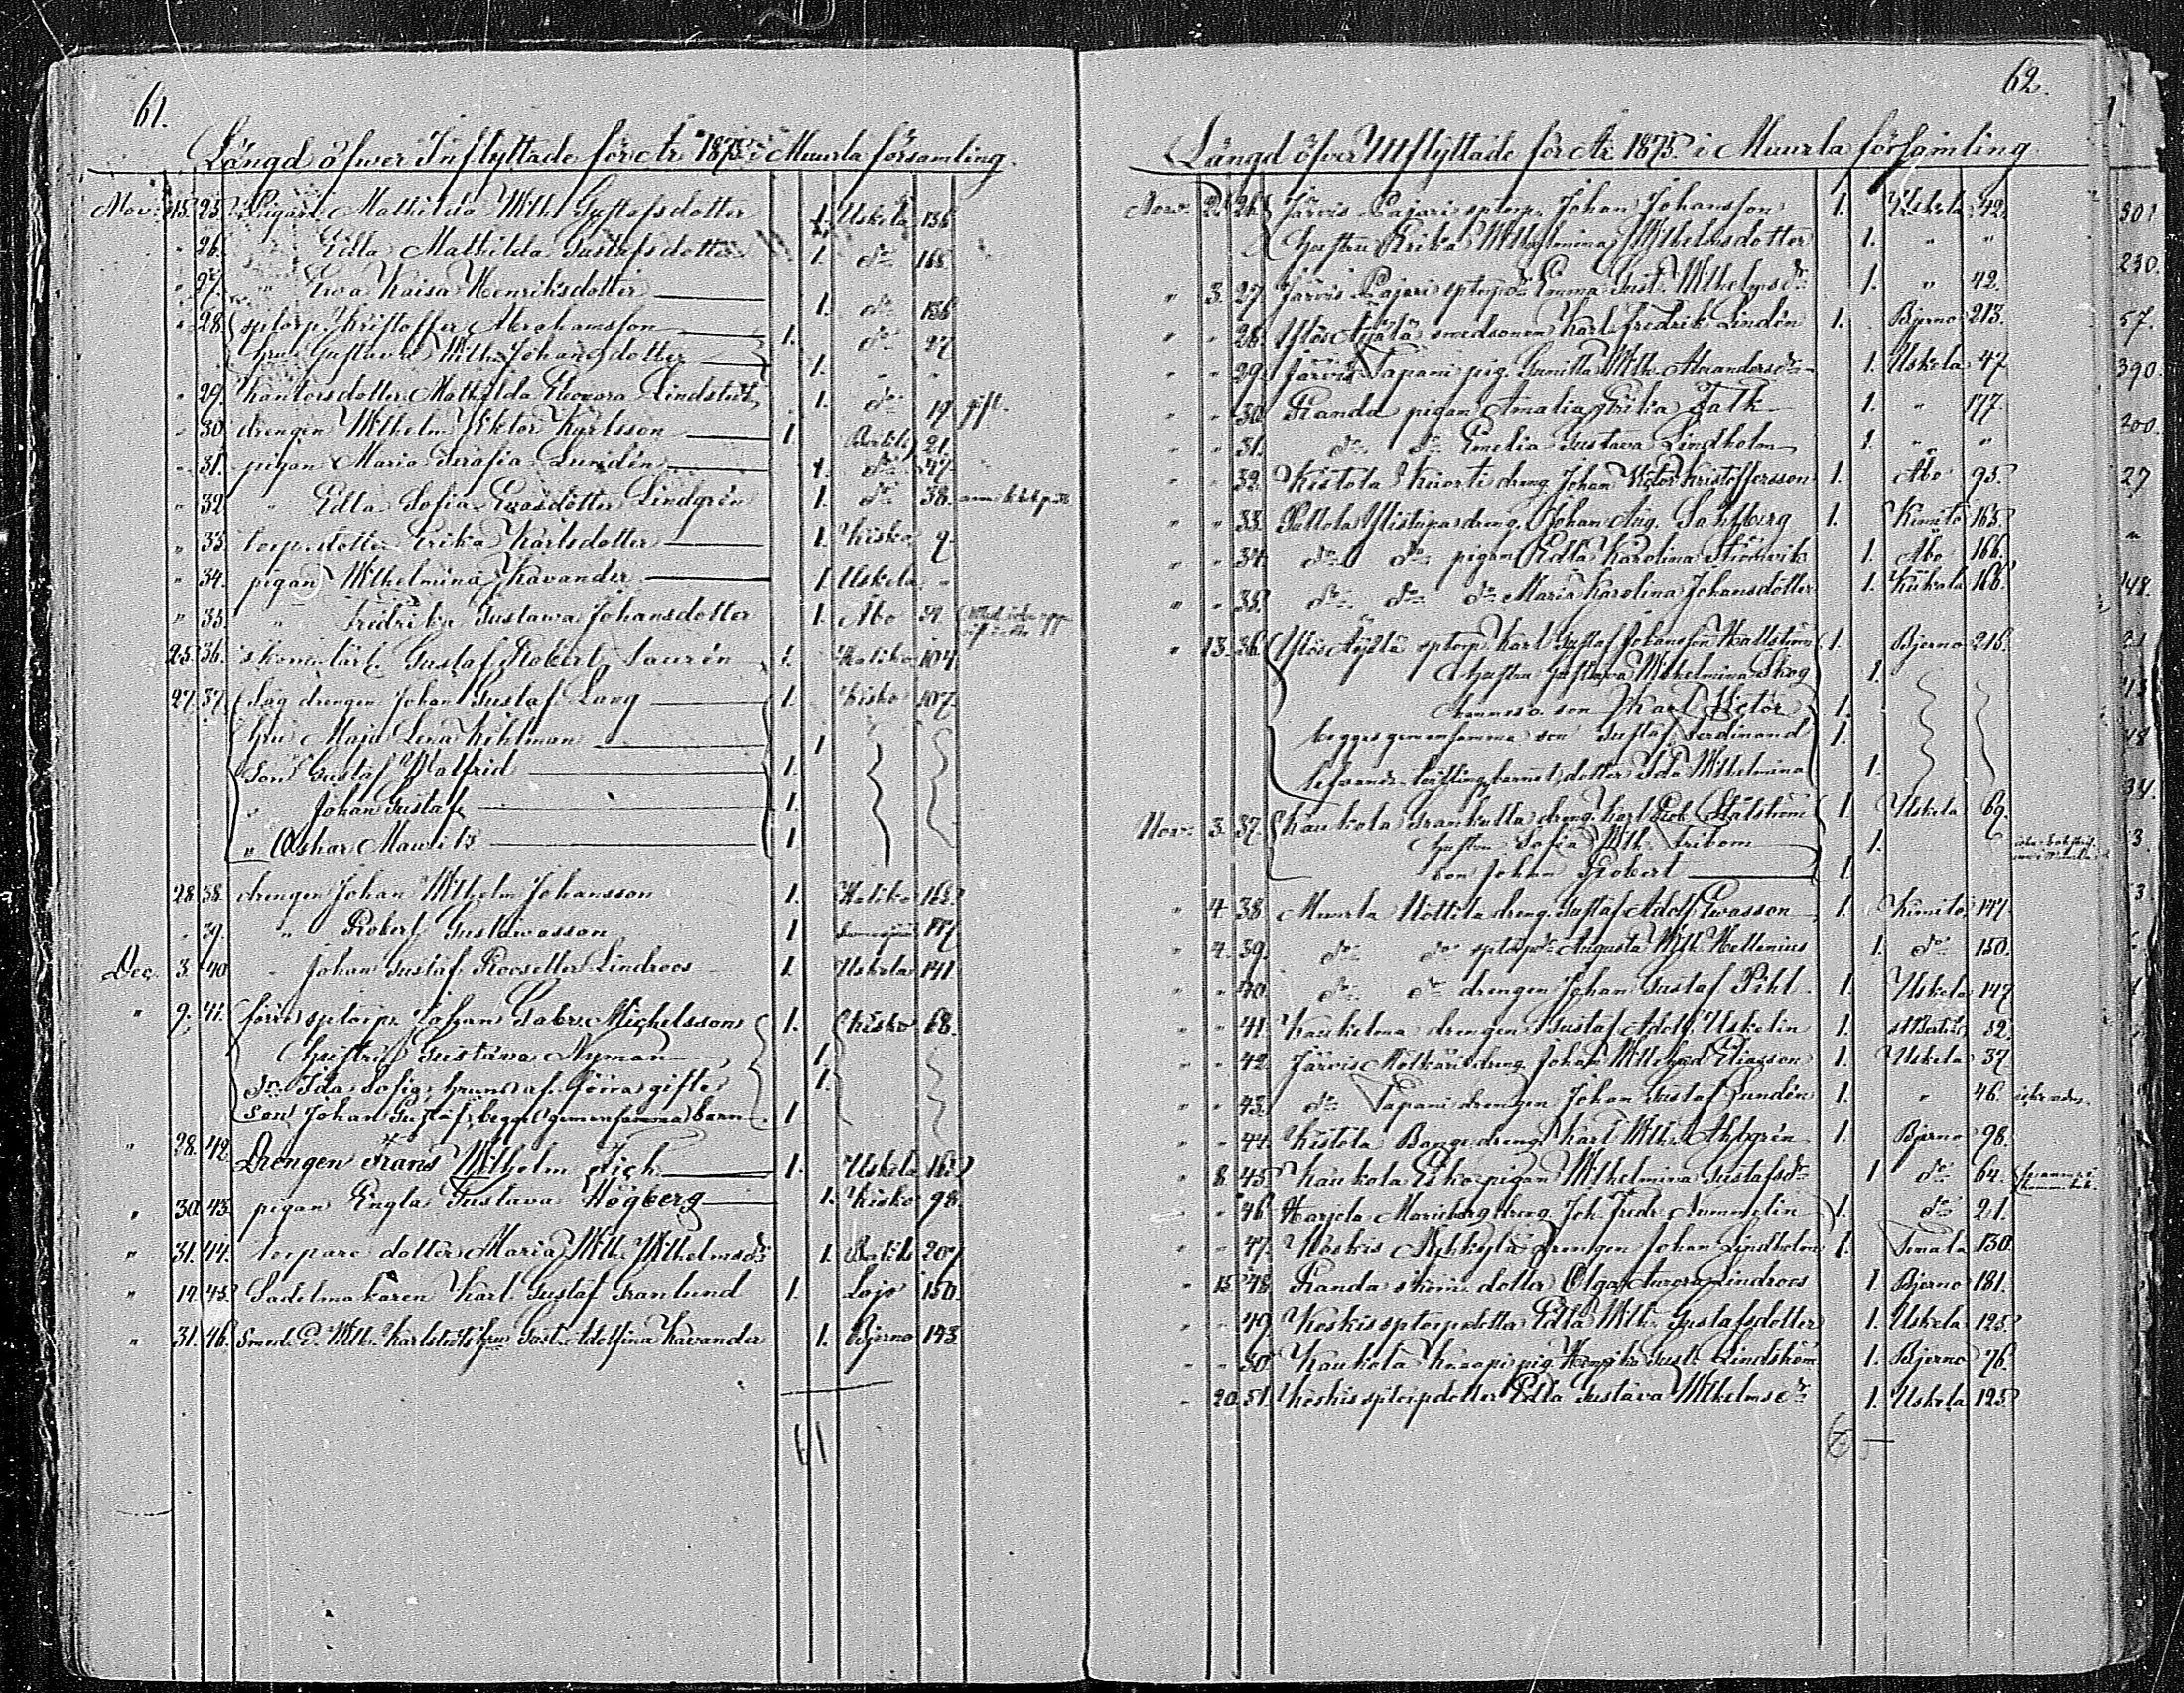 61.
Längd öfwer Inflyttade för År 1875 i Muurla församling.
Nov. 15. 25. Pigan Mathilda Wilh. Gustafsdotter 1. Uskela 136
" 26. " Edla Mathilda Gustafsdotter 1. do 168
" 27. " Ewa Kaisa Henriksdotter 1. do 136
" 28. sptorp. Kristoffer Abrahamsson 1. do 27
hru Gustava Wilh. Johansdotter 1. " "
" 29. Kantorsdotter Mathilda Eleonora Lindstedt 1. do 19 gift.
" 30. drengen Wilhelm Viktor Karlsson 1. Bertils 21.
" 31. pigan Maria Serafia Lundén 1. do 47.
" 32. " Edla Sofia Evasdotter Lindgrén 1. do 38.
" 33. torp.dotter Erika Karlsdotter 1. Kisko 9.
" 34. pigan Wilhelmina Kavander 1. Uskela "
" 35. " Fredrika Gustawa Johansdotter 1. Åbo
25. 36. skom.lärl. Gustaf Robert Laurén 1. Haliko 104
27. 37. Såg drengen Johan Gustaf Lang 1. Kisko 107.
hru Maja Lena Kihlman 1
Son Gustaf Walfrid 1.
" Johan Gustaf 1.
" Oskar Mauritz 1
28. 38. drengen Johan Wilhelm Johansson 1. Haliko 162
" 39. " Robert Gustawasson 1 117
Dec. 3. 40. " Johan Gustaf Lindroos 1. Uskela 141
" 9. 41. förre sptorp. Johan Gabr. Michelsson 1. Kisko 68.
hustru Gustawa Nyman 1.
dr Ida Sofia, hruns af förra gifte 1.
Son Johan Gustaf, begges gemensamma barn 1
" 28. 42. Drengen Frans Wilhelm Fich 1. Uskela 162
" 30. 43. pigan Engla Gustava Högberg 1. Kisko 98.
" 31. 44. torpare dotter Maria Wilh. Wilhelmsdr 1. Batils 207
" 14. 45. Sadelmakaren Karl Gustaf Granlund 1. Lojo 150.
" 31. 46. Smed. E. Wilh. Karlstedts hru Gust. Adolfina Kavander 1. Bjerno 143
62.
Längd öfver Utflyttade för År 1875. i Muurla församling
Nov. 2. 26. Järvis Pajari sptorp. Johan Johansson 1. Uskela 42.
Hustru Erika Wilhelmina Wilhelmsdotter 1. " "
" 3. 27 Järvis Pajari sptorpdr Emma Gust. Wilhelmsdr 1. " 42.
" " 28. Ylös Äijälä smedsonen Karl Fredrik Lindén 1. Bjerno 213.
" " 29. Järvis Tapani pig. Gunilla Wilh. Alexandersdr 1. Uskela 47
" " 30. Randa pigan Amalia Erika Falk 1. " 177.
" " 31. do do Emelia Gustava Lindholm 1. " "
" " 32. Kistola Kuorti dreng. Johan Victor Kristoffersson 1. Åbo 95.
" " 33. Pullola Ylistupa dreng. Johan Aug. Sahlberg 1. Kimito 165.
" " 34. do do pigan Edla Karolina 1. Åbo 166.
" " 35. do do do Maria Karolina Johansdotter 1. 166.
" 13. 36. Ylös Äijälä sptorp. Karl Gustaf Johansson Hallström 1. Bjerno 216.
Hustru Gustava Wilhelmina Skog 1.
hennes o. son Karl Victor 1.
begges gemensamma son Gustaf Ferdinand 1.
dotter Ida Wilhelmina 1.
Nov. 3. 37. Kaukola dreng. Karl Stålström 1. Uskela 69.
hustru Sofia Wilh. Fribom 1.
son Johan Robert 1
" 4. 38. Muurla Uottila dreng. Gustaf Adolf Ewasson 1. Kimito 147.
" 4. 39. do do sptorpdr Augusta Wilh. Hellenius 1. do 150.
" " 40. do do drengen Johan Gustaf Pihl 1. Uskela 147
" " 41. Kaukelma drengen Gustaf Adolf Uskelin 1. St Bertils 32.
" " 42. Järvis dreng. Johan Wilhelm Eliasson 1. Uskela 37
" " 43. do Tapani drengen Johan Gustaf Lundén 1. " 46.
" " 44. Kistola Bange dreng. Karl Wilh. Ahlgrén 1. Bjerno 98.
" 8. 45. Kaukola Esko pigan Wilhelmina Gustafsdr 1 do 64.
" " 46. Harjola Marieberg dreng. Joh. Fredr. Nummelin 1. do 21.
" " 47. Koskis drengen Johan Lindholm 1. Tenala 130.
" 15. 48. Randa skom. dotter Olga Aurora Lindroos 1. Bjerno 181.
" " 49. Koskis sptorpdotter Edla Wilh. Gustafsdotter 1. Uskela 125.
" " 50. Kaukola Knaapi pig. Henrika Gust. Lindström 1. Bjerno 76.
" 20. 51. Koskis sptorpdotter Edla Gustava Wilhelmsdr 1. Uskela 125